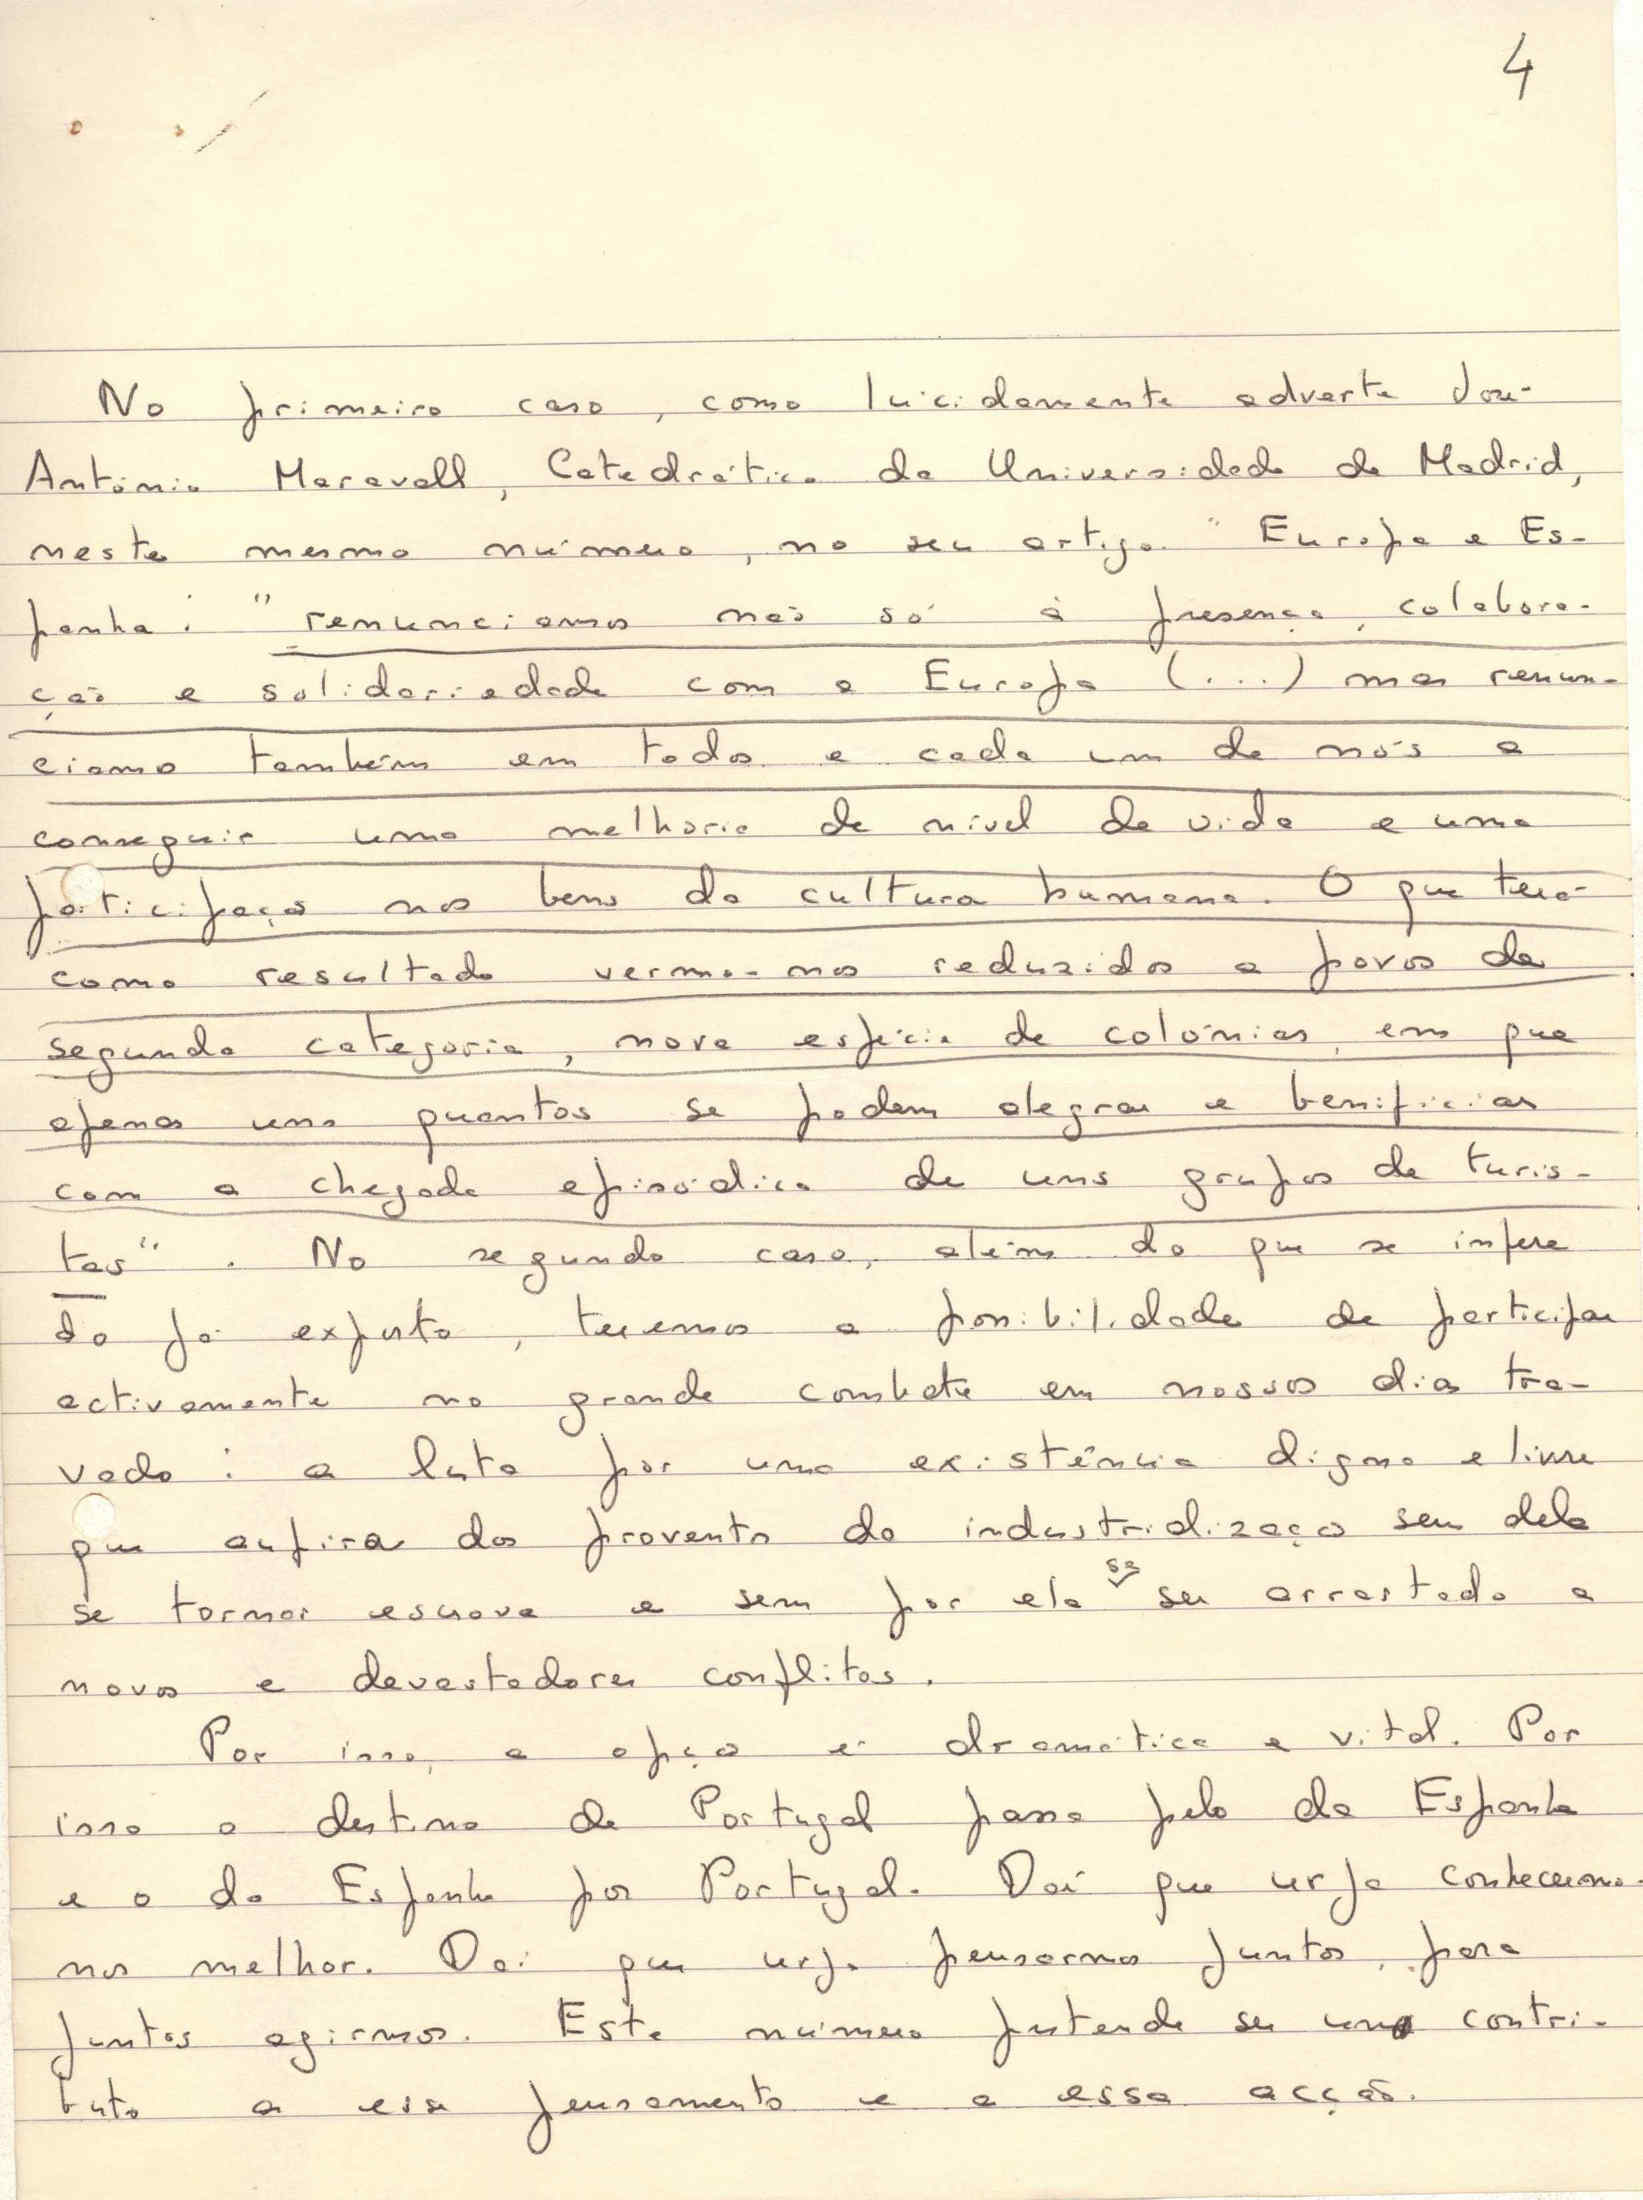 4
No primeiro caso, como lucidamente adverte José
António Maravall, Catedrático da Universidade de Madrid,
neste mesmo número, no seu artigo "Europa e Es-
panha: "renunciamos não só à presença, colabora-
ção e solidariedade com a Europa (...) mas renun-
ciamo também em todos e cada um de nós a
conseguir uma melhoria de nível de vida e uma
participação nos bens da cultura humana. O que terá
como resultado vermo-nos reduzidos a povos de
segunda categoria, nova espécie de colónias, em que
apenas uns quantos se podem alegrar e benificiar
com a chegada episódica de uns grupos de turis-
tas". No segundo caso, além do que se infere
do já exposto, teremos a possibilidade de participar
activamente no grande combate em nossos dias tra-
vado: a luta por uma existência digna e livre
que aufira dos proventos da industrialização sem dela
se tornar escrava e sem por ela se ser arrastado a
novos e devastadores conflitos.
Por isso, a opção é dramática e vital. Por
isso o destino de Portugal passa pelo da Espanha
e o da Espanha por Portugal. Daí que urja conhecermo-
nos melhor. Daí que urja pensarmos juntos, para
juntos agirmos. Este número pretende ser um contri-
buto a esse pensamento e a essa acção.